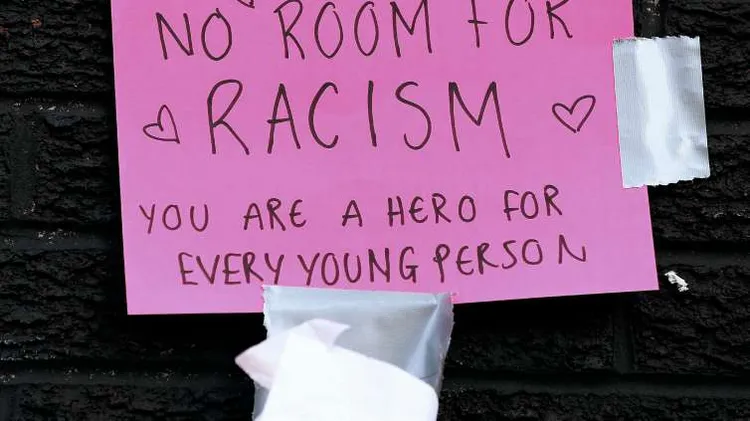 NO ROOM FOR
RACISM
YOU ARE A HERO FOR
EVERY YOUNG PERSON